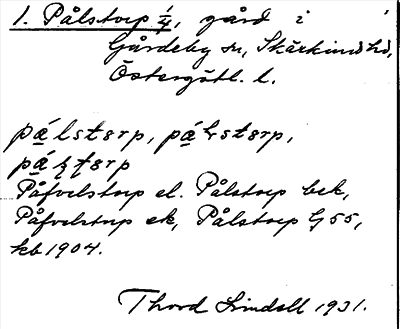 1. Pålstorp 1/4, gård i
Gårdeby sn, Skärkinds hd,
Östergötl. l.
pálstørp, pá
pá
Påfvelstorp el. Pålstorp bek,
Påfvelstorp ek, Pålstorp G 55,
kb 1904.
Thord Lindell 1931.